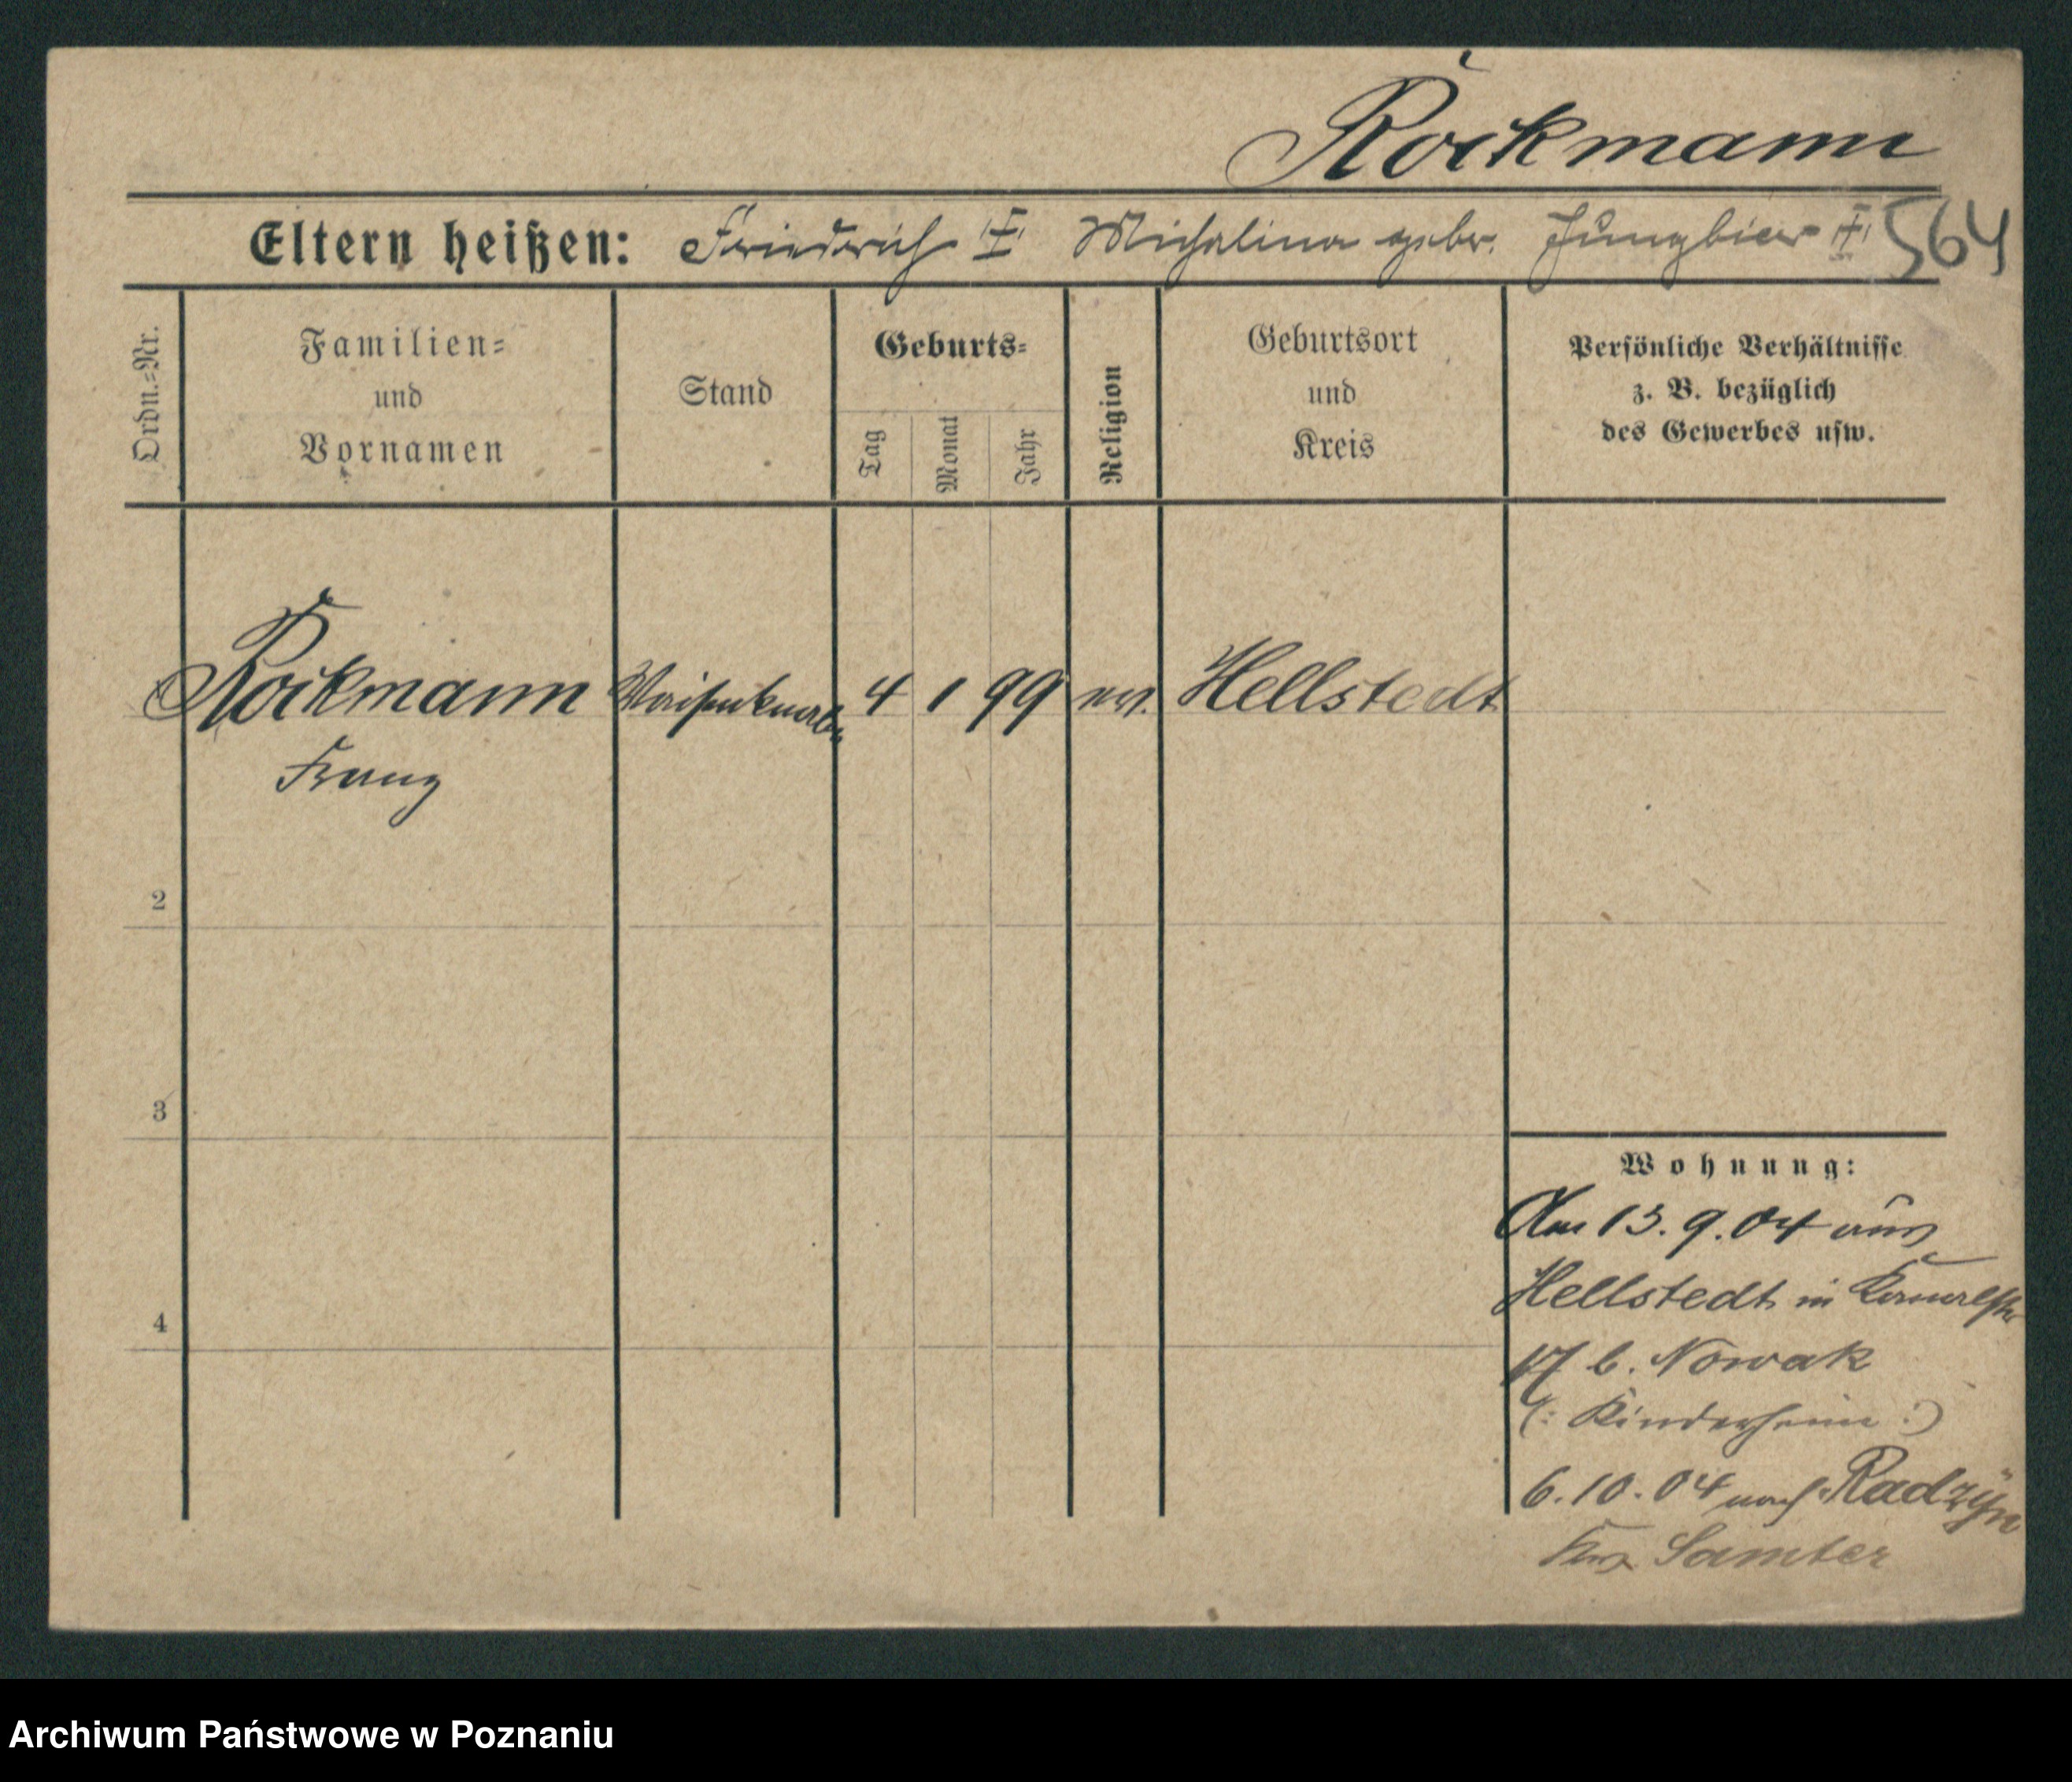 Rockmann
Eltern heißen: Friedrich † Michalina gebor. Jungbier † 564
Ordn.=Nr.
Familien=
und
Vornamen
Stand
Geburts=
Tag
Monat
Jahr
Religion
Geburtsort
und
Kreis
Persönliche Verhältnisse
z. B. bezüglich
des Gewerbes usw.
Rockmann Waisenknabe 4 1 99 ev. Hellstedt
Franz
2
3
4
Wohnung:
Am 13.9.04 aus
Hellstedt in
17 b. Nowak
(: Kinderheim :)
6.10.04 nach Radzyn
Krs Samter
Archiwum Państwowe w Poznaniu